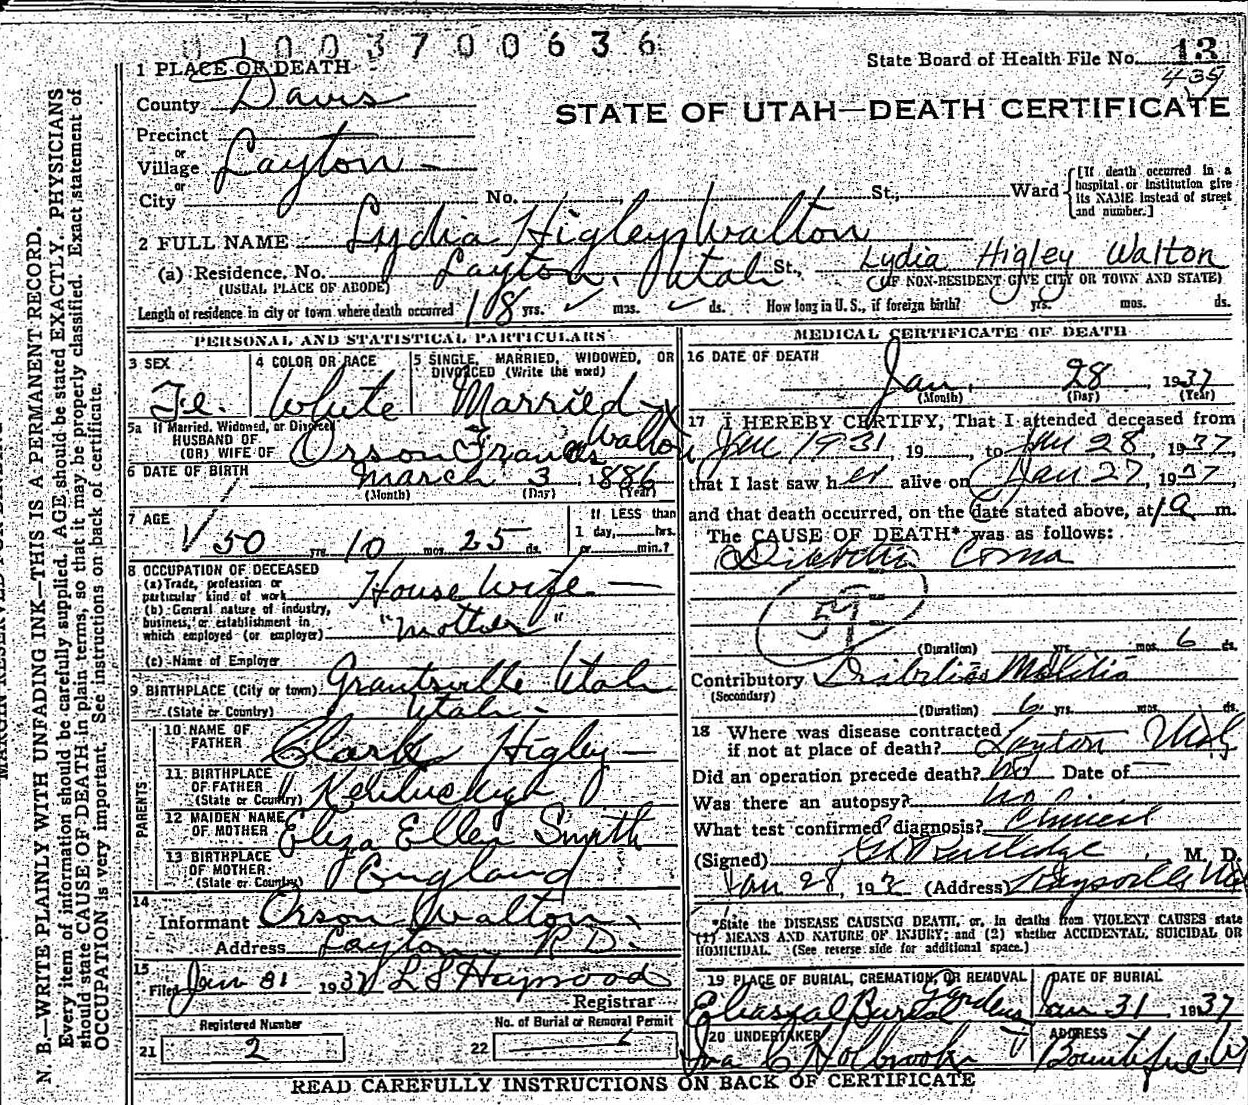 0100370 0636
State Board of Health File No. 13
435
1 PLACE OF DEATH
County Davis
STATE OF UTAH—DEATH CERTIFICATE
Precinct
or
Village Layton
or
City No. St., Ward
[If death occurred in a hospital or institution give its NAME instead of street and number.]
2 FULL NAME Lydia Higley Walton
(a) Residence. No. Layton, Utah St., Lydia Higley Walton
(USUAL PLACE OF ABODE) (IF NON-RESIDENT GIVE CITY OR TOWN AND STATE)
Length of residence in city or town where death occurred 18 yrs. mos. ds. How long in U. S., if foreign birth? yrs. mos. ds.
PERSONAL AND STATISTICAL PARTICULARS
3 SEX Fe.
4 COLOR OR RACE White
5 SINGLE, MARRIED, WIDOWED, OR DIVORCED (Write the word) Married
5a If Married, Widowed, or Divorced
HUSBAND OF
(OR) WIFE OF Orson Francis Walton
6 DATE OF BIRTH March 3 1886
(Month) (Day) (Year)
7 AGE 50 yrs. 10 mos. 25 ds.
If LESS than 1 day, hrs. or min.?
8 OCCUPATION OF DECEASED
(a) Trade, profession or particular kind of work House Wife
(b) General nature of industry, business, or establishment in which employed (or employer) "Mother"
(c) Name of Employer
9 BIRTHPLACE (City or town) Grantsville Utah
(State or Country) Utah
PARENTS
10 NAME OF FATHER Clark Higley
11 BIRTHPLACE OF FATHER
(State or Country)
12 MAIDEN NAME OF MOTHER Eliza Ellen Smith
13 BIRTHPLACE OF MOTHER
(State or Country) England
14 Informant Orson Walton
Address Layton R D.
15 Filed Jan 31 1937 L S Haywood
Registrar
Registered Number
21 2
No. of Burial or Removal Permit
22
MEDICAL CERTIFICATE OF DEATH
16 DATE OF DEATH
Jan. 28, 1937
(Month) (Day) (Year)
17 I HEREBY CERTIFY, That I attended deceased from
Jan 1931, 19 , to Jan 28, 1937
that I last saw her alive on Jan 27, 1937,
and that death occurred, on the date stated above, at 1 a m.
The CAUSE OF DEATH* was as follows:
Diabetic Coma
59
(Duration) yrs. mos. 6 ds.
Contributory Diabetes
(Secondary)
(Duration) 6 yrs. mos. ds.
18 Where was disease contracted
if not at place of death? Layton Utah
Did an operation precede death? No Date of
Was there an autopsy? no
What test confirmed diagnosis? Clinical
(Signed) M. D.
Jan 28, 193 (Address) Kaysville
*State the DISEASE CAUSING DEATH, or, in deaths from VIOLENT CAUSES state
(1) MEANS AND NATURE OF INJURY; and (2) whether ACCIDENTAL, SUICIDAL OR
HOMICIDAL. (See reverse side for additional space.)
19 PLACE OF BURIAL, CREMATION, OR REMOVAL
Burial Gardens
DATE OF BURIAL
Jan 31 1937
20 UNDERTAKER
Ira C Holbrook
ADDRESS
Bountiful U
READ CAREFULLY INSTRUCTIONS ON BACK OF CERTIFICATE
N. B.—WRITE PLAINLY WITH UNFADING INK—THIS IS A PERMANENT RECORD.
Every item of information should be carefully supplied. AGE should be stated EXACTLY. PHYSICIANS
should state CAUSE OF DEATH in plain terms, so that it may be properly classified. Exact statement of
OCCUPATION is very important. See instructions on back of certificate.